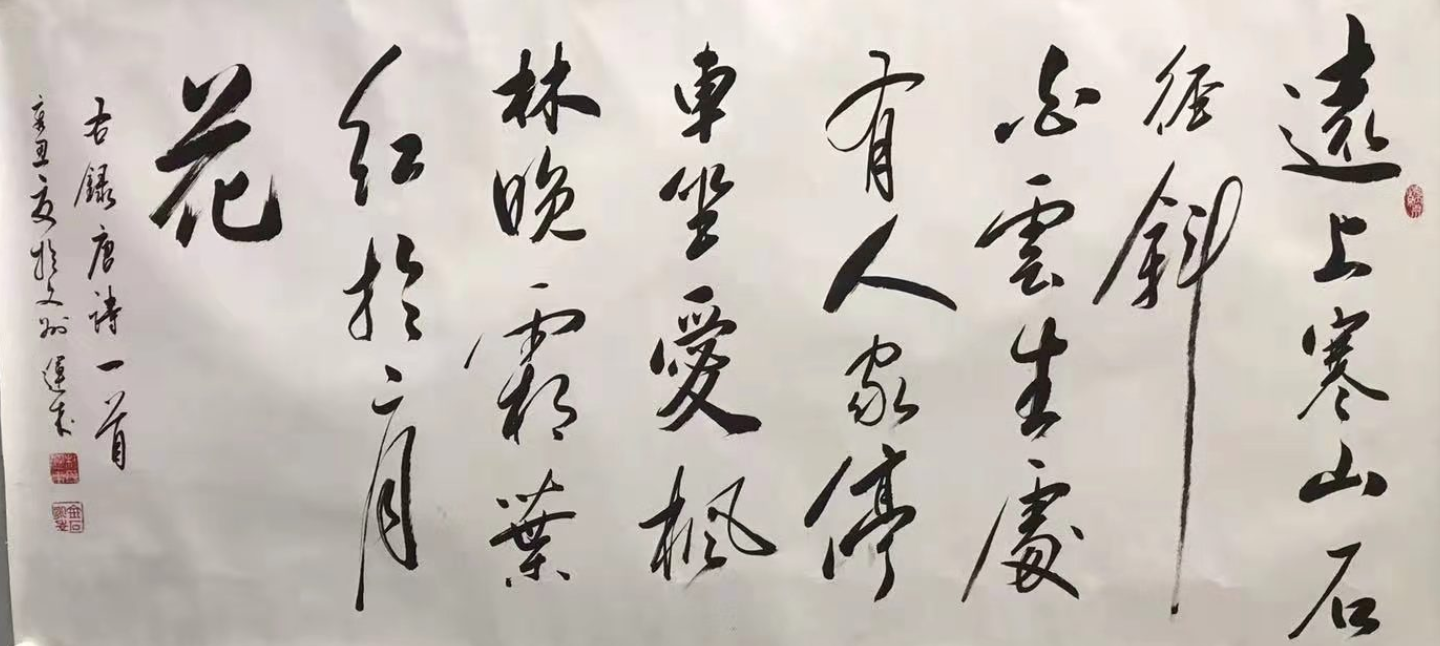 遠上寒山石
徑斜
白雲生處
有人家停
車坐愛楓
林晚霜葉
紅於二月
花
右錄唐詩一首
辛丑夏於文州運成